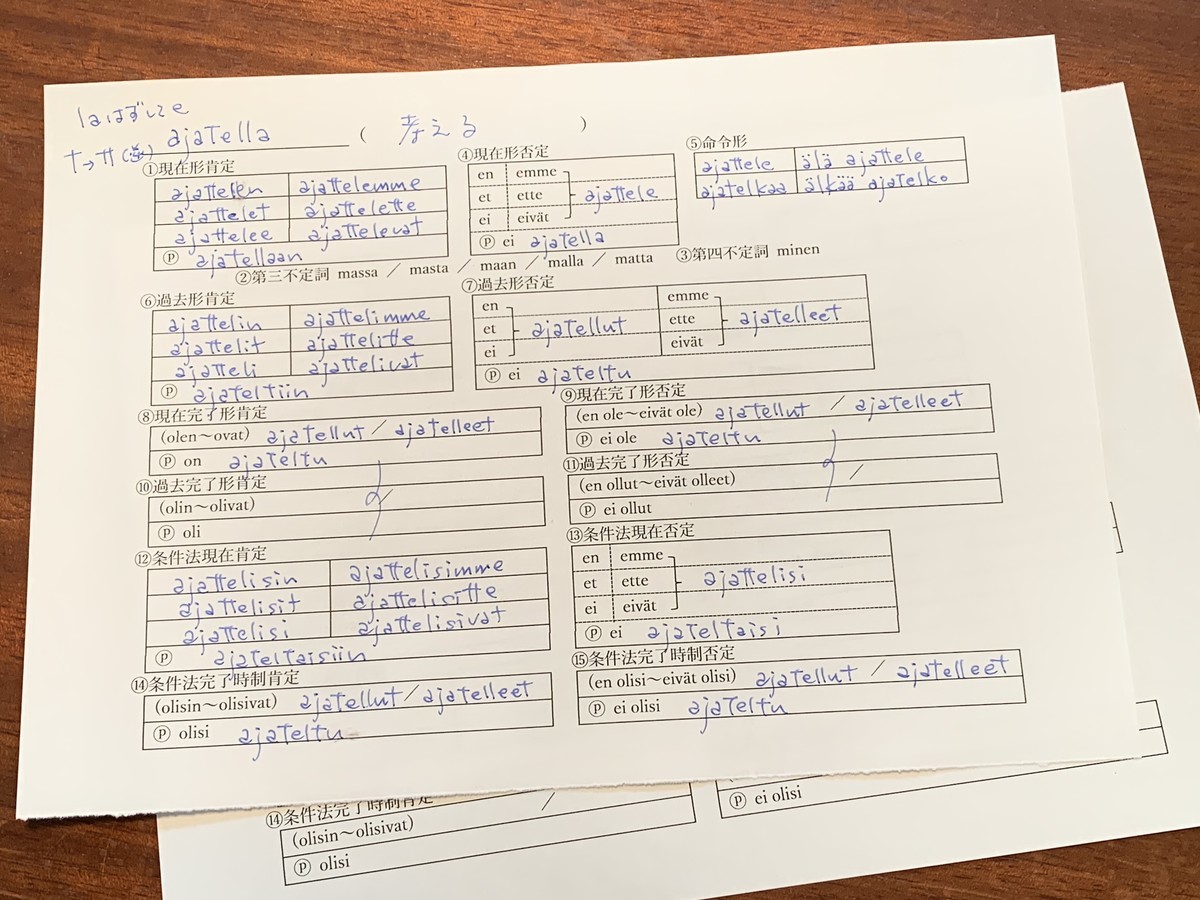 laはずしてe
t→tt(逆) ajatella ( 考える )
①現在形肯定
ajattelen ajattelemme
ajattelet ajattelette
ajattelee ajattelevat
Ⓟ ajatellaan
④現在形否定
en emme
et ette ajattele
ei eivät
Ⓟ ei ajatella
⑤命令形
ajattele älä ajattele
ajatelkaa älkää ajatelko
②第三不定詞 massa / masta / maan / malla / matta ③第四不定詞 minen
⑥過去形肯定
ajattelin ajattelimme
ajattelit ajattelitte
ajatteli ajattelivat
Ⓟ ajateltiin
⑦過去形否定
en emme
et ajatellut ette ajatelleet
ei eivät
Ⓟ ei ajateltu
⑧現在完了形肯定
(olen~ovat) ajatellut / ajatelleet
Ⓟ on ajateltu
⑨現在完了形否定
(en ole~eivät ole) ajatellut / ajatelleet
Ⓟ ei ole ajateltu
⑩過去完了形肯定
(olin~olivat) /
Ⓟ oli
⑪過去完了形否定
(en ollut~eivät olleet) /
Ⓟ ei ollut
⑫条件法現在肯定
ajattelisin ajattelisimme
ajattelisit ajattelisitte
ajattelisi ajattelisivat
Ⓟ ajateltaisiin
⑬条件法現在否定
en emme
et ette ajattelisi
ei eivät
Ⓟ ei ajateltaisi
⑭条件法完了時制肯定
(olisin~olisivat) ajatellut / ajatelleet
Ⓟ olisi ajateltu
⑮条件法完了時制否定
(en olisi~eivät olisi) ajatellut / ajatelleet
Ⓟ ei olisi ajateltu
⑭条件法完了時制肯定
(olisin~olisivat) /
Ⓟ olisi
Ⓟ ei olisi